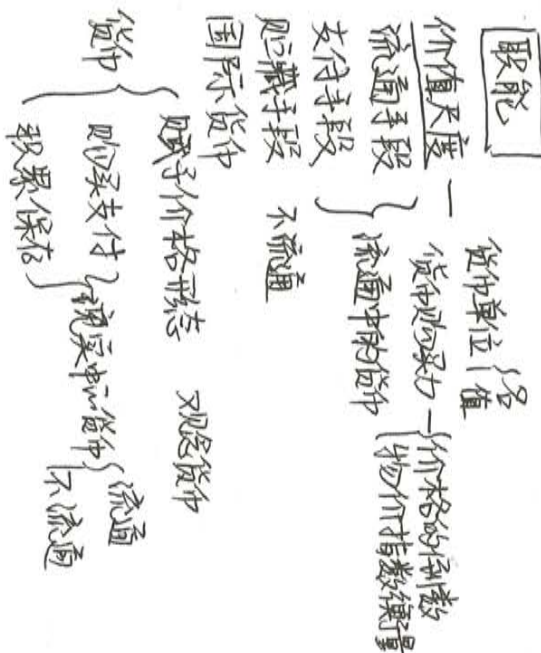 职能
价值尺度 — 货币单位 { 名
值
货币购买力 — { 价格的倒数
物价指数衡量
流通手段
支付手段 } 流通中的货币
贮藏手段 不流通
国际货币
货币 { 赋予价格形态 观念货币
购买支付
积累保存 } 现实中的货币 { 流通
不流通